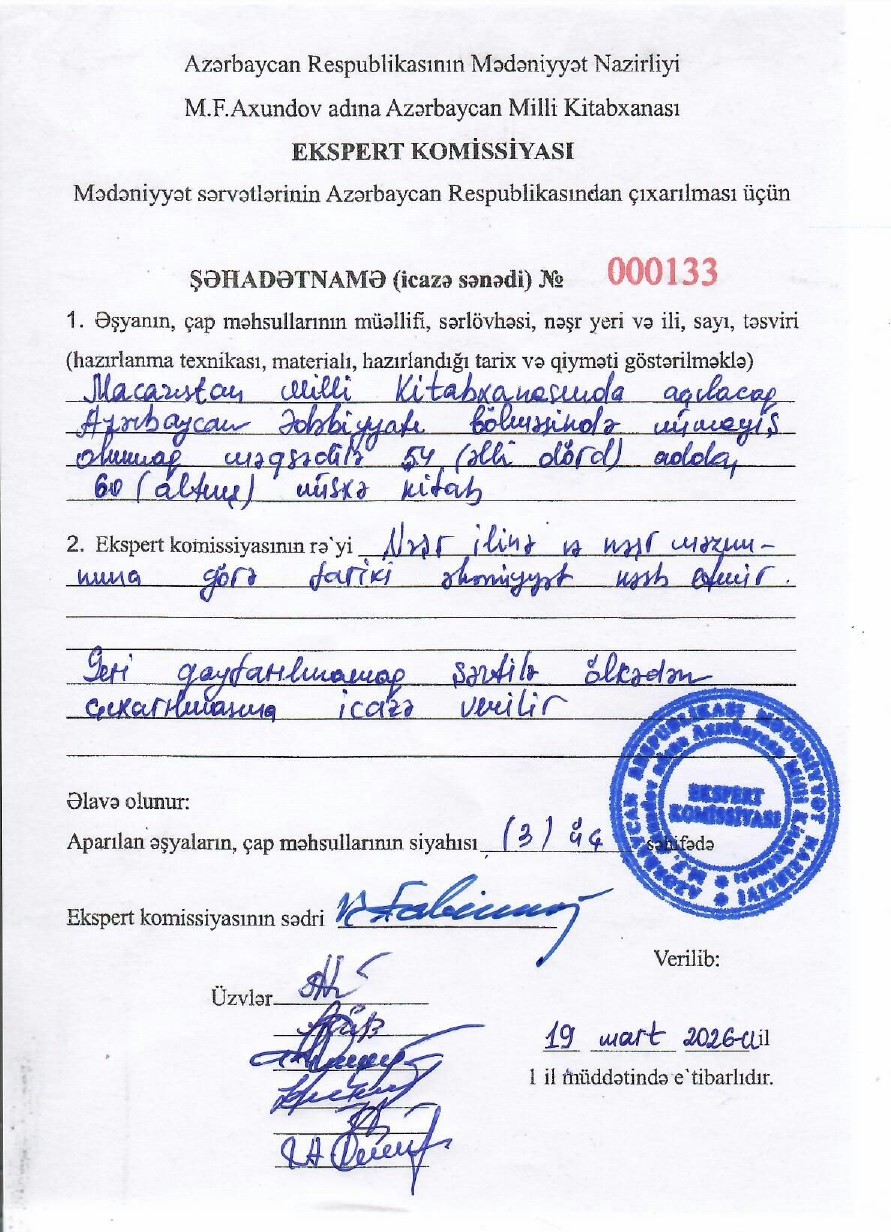 Azərbaycan Respublikasının Mədəniyyət Nazirliyi
M.F.Axundov adına Azərbaycan Milli Kitabxanası
EKSPERT KOMİSSİYASI
Mədəniyyət sərvətlərinin Azərbaycan Respublikasından çıxarılması üçün
ŞƏHADƏTNAMƏ (icazə sənədi) № 000133
1. Əşyanın, çap məhsullarının müəllifi, sərlövhəsi, nəşr yeri və ili, sayı, təsviri
(hazırlanma texnikası, materialı, hazırlandığı tarix və qiyməti göstərilməklə)
Macarıstan Milli Kitabxanasında açılacaq
Azərbaycan Ədəbiyyatı bölməsində nümayiş
olunmaq məqsədilə 54 (əlli dörd) adda,
60 (altmış) nüsxə kitab
2. Ekspert komissiyasının rə`yi Nəşr ilinə və nəşr məzmu-
nuna görə tarixi əhəmiyyət kəsb etmir.
Geri qaytarılmamaq şərtilə ölkədən
çıxarılmasına icazə verilir
AZƏRBAYCAN RESPUBLİKASI MƏDƏNİYYƏT NAZİRLİYİ
EKSPERT
KOMİSSİYASI
Əlavə olunur:
Aparılan əşyaların, çap məhsullarının siyahısı (3) üç səhifədə
Ekspert komissiyasının sədri
Verilib:
Üzvlər
19 mart 2026-cı il
1 il müddətində e`tibarlıdır.